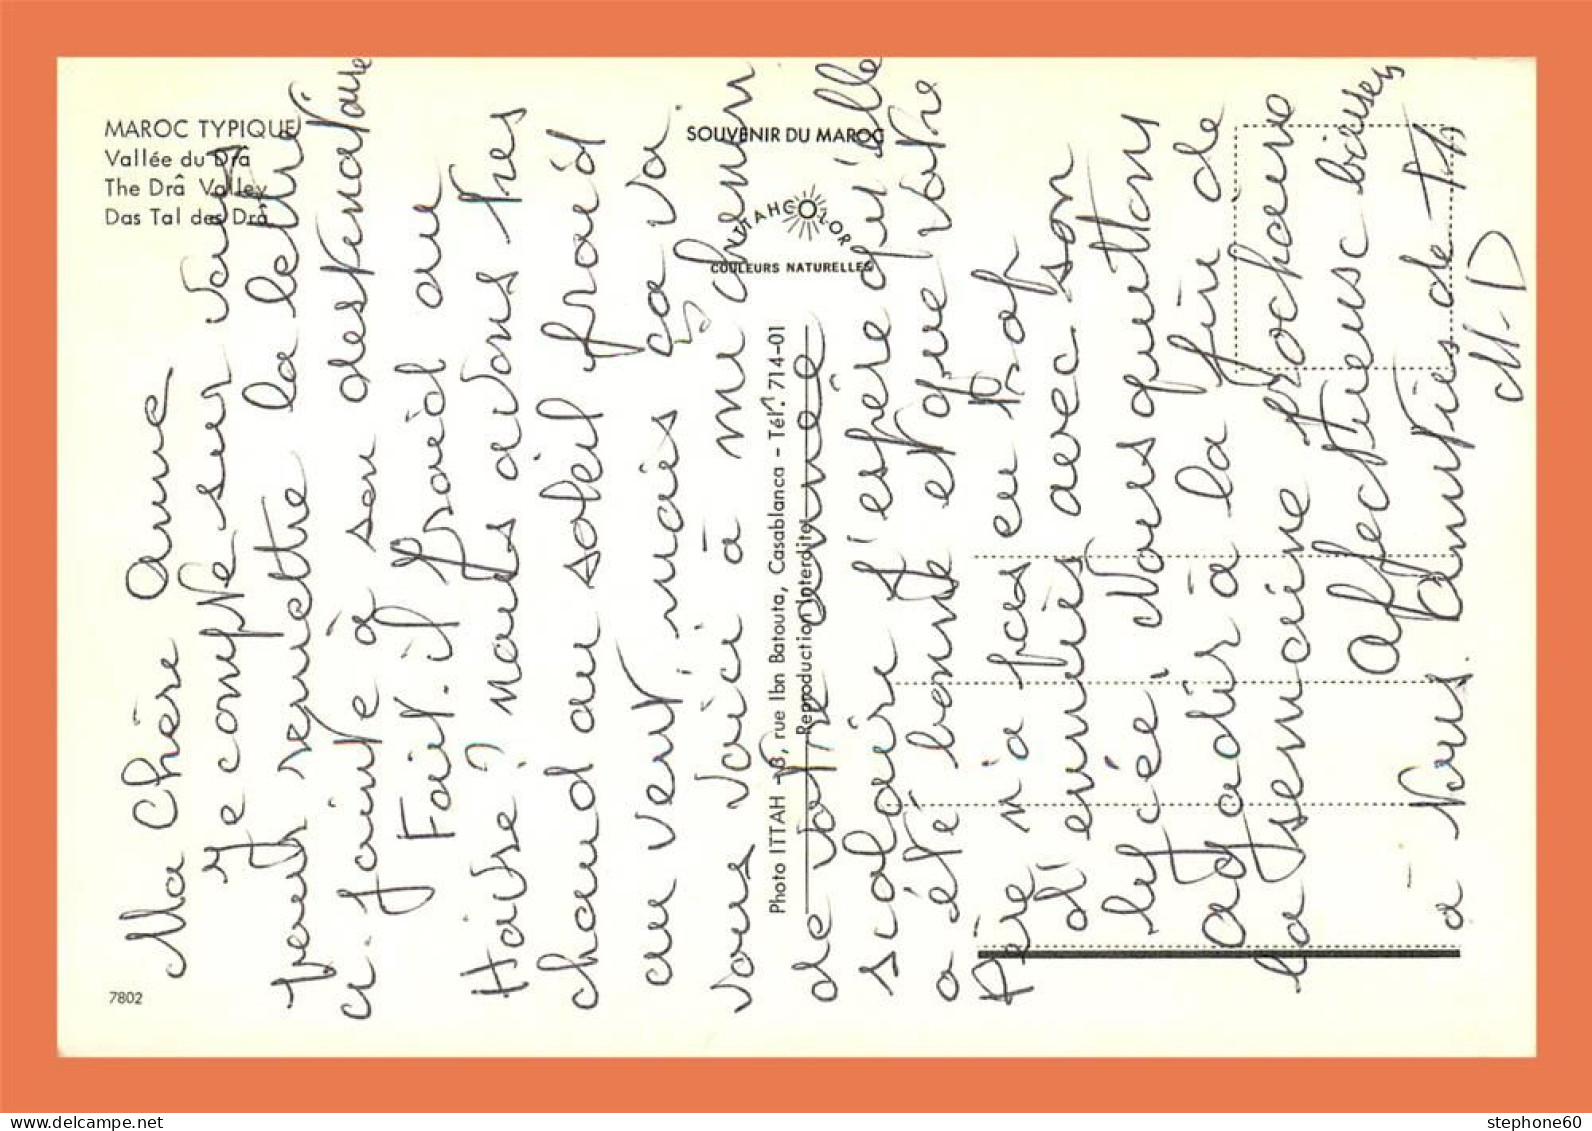 MAROC TYPIQUE
Vallée du Drâ
The Drâ Valley
Das Tal des Drâ
SOUVENIR DU MAROC
ITTAHCOLOR
COULEURS NATURELLES
Photo ITTAH - 3, rue Ibn Batouta, Casablanca - Tél. 714-01
Reproduction Interdite
7802
Ma chère Anne
Je compte sur vous
pour remettre la lettre
ci-jointe à son destinataire
Fait-il froid au
Havre? nous avons très
chaud au soleil froid
au vent mais ça va.
Vous voici à mi chemin
de votre année
scolaire j'espère qu'elle
a été bonne et que votre
Père n'a pas eu trop
d'ennuies avec son
lycée, Nous quittons
Agadir à la fin de
la semaine prochaine
Affectueux baisers
à Vous. Amitiés de TH
M-D
stephone60